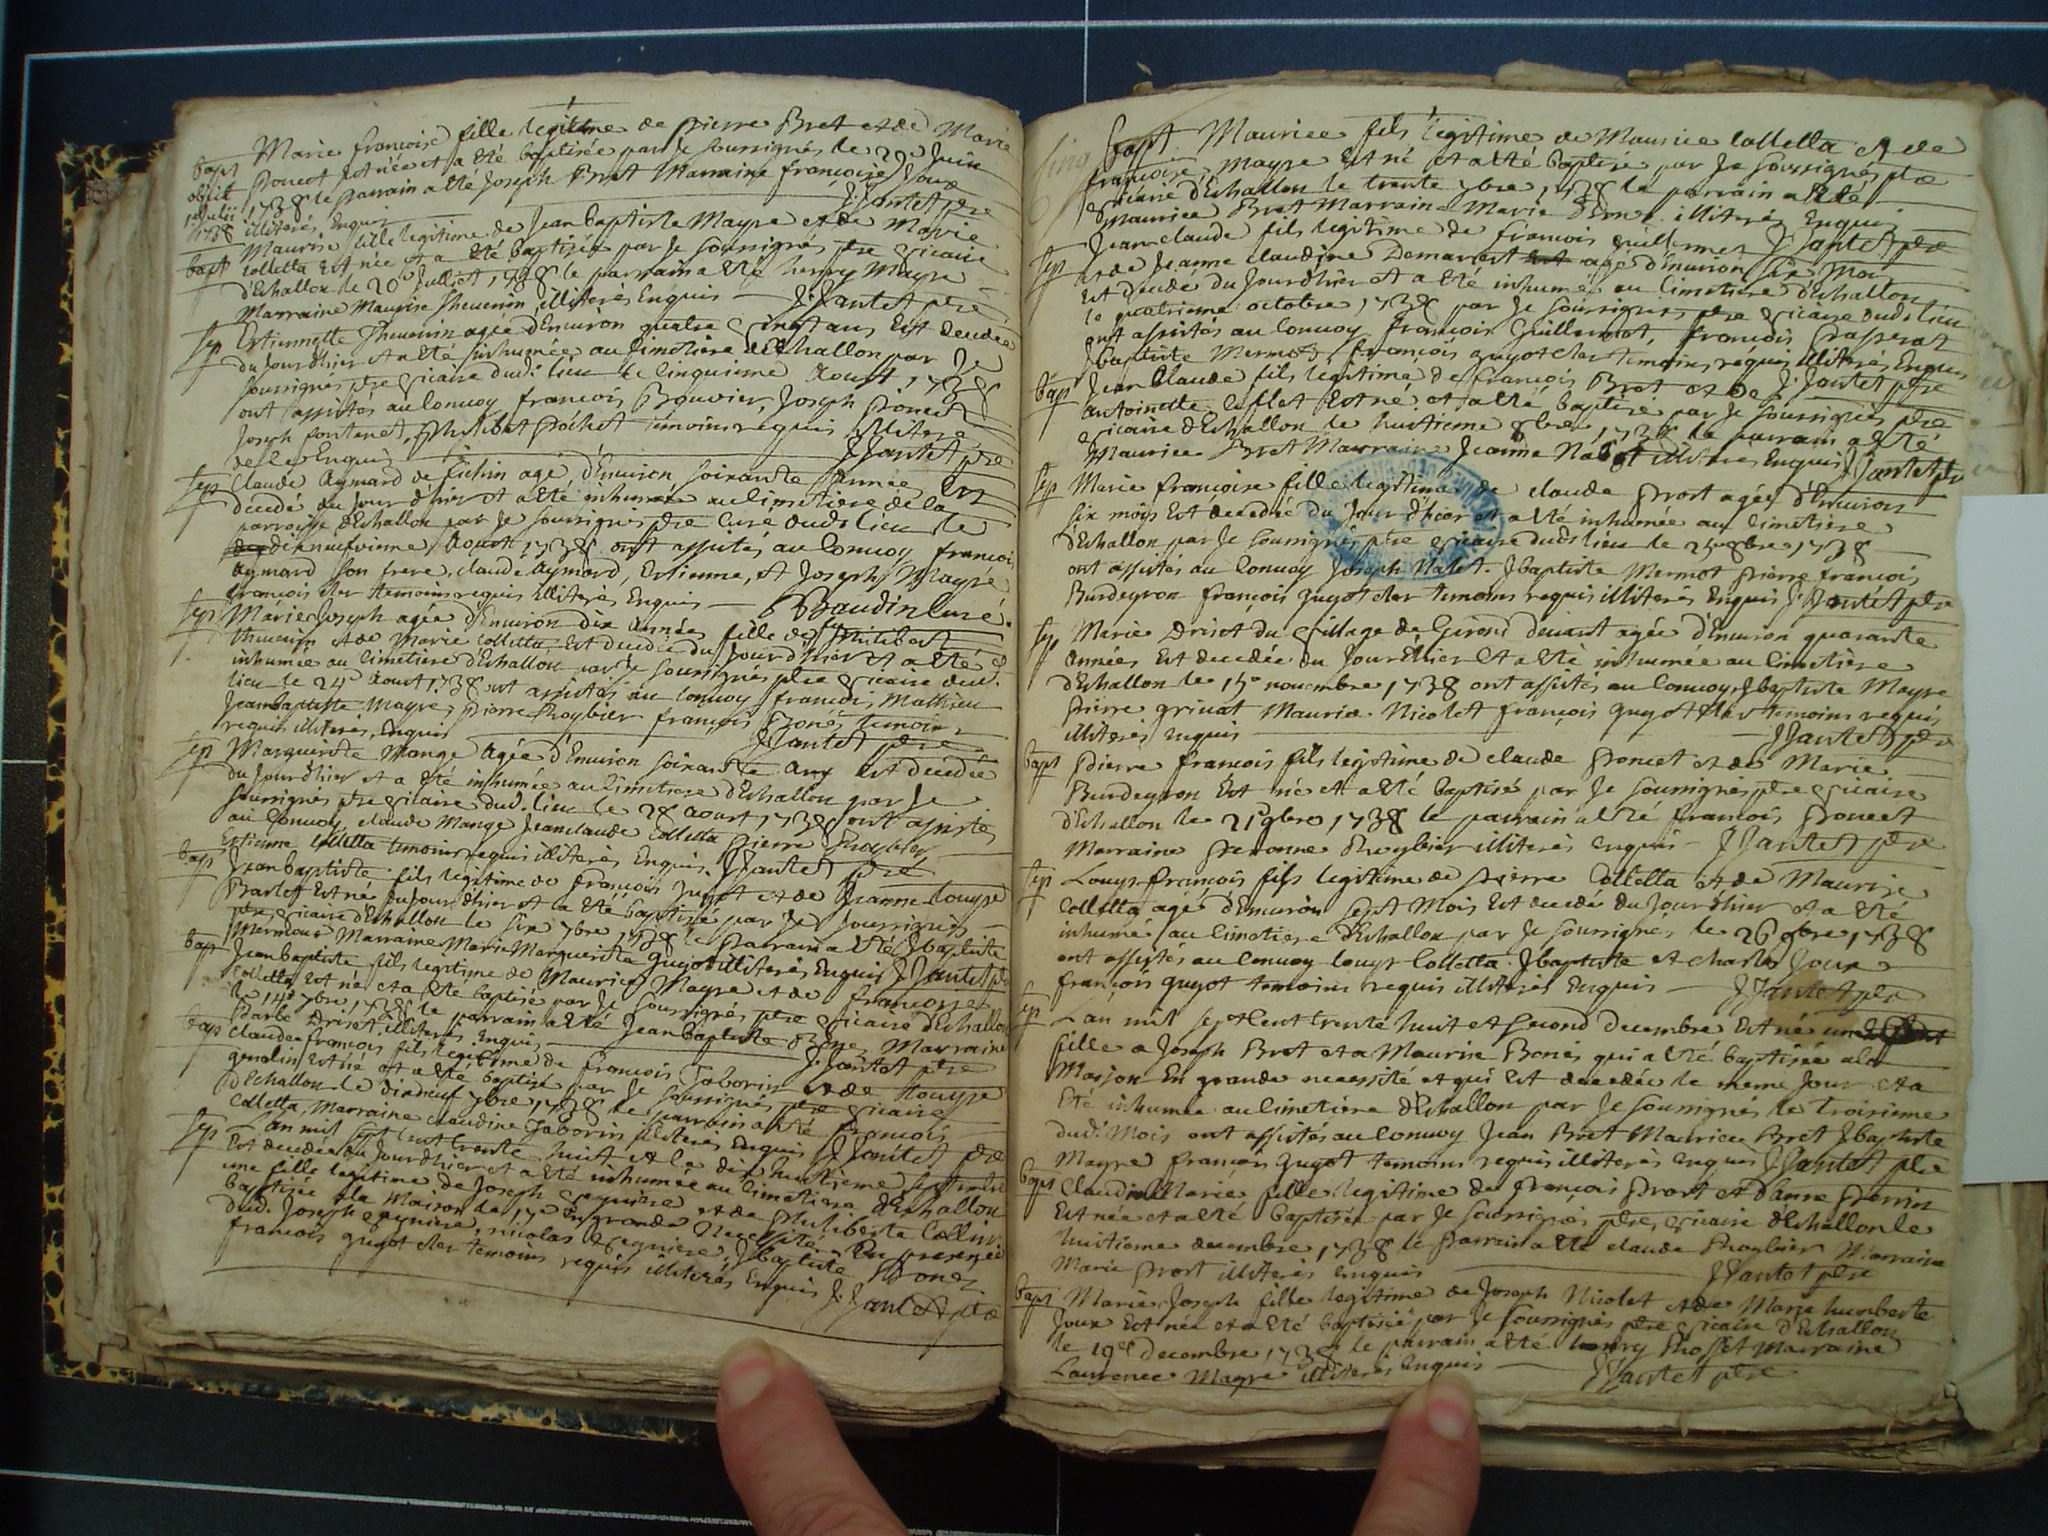 bapt Marie francoise fille legitime de pierre Bret et de Marie
poncet est née et a été baptisée par Je soussignés le 29e Juin
1738 le parrain a été Joseph Bret Marraine françoise Joux
illiterés Enquis J Jantet ptre
bapt Maurise fille legitime de Jean baptiste Mayre et de Marie
Colletta est née et a été baptisée par Je soussignés ptre vicaire
d'Echallon le 20e Juillet 1738 le parrain a été henry Mayre
Marraine Maurise Thevenin illiterés Enquis J. Jantet ptre
Sep Estiennette Thevenin agée d'Environ quatre vingt ans Est decedée
du Jour d'hier et a été inhumée au cimetiere d'Echallon par Je
soussignés ptre vicaire dud. lieu le cinquieme Aoust 1738
ont assistés au Convoy francois Bouvier, Joseph poncet
Joseph fontenet, philibert pochet temoins requis illiteré
de ce Enquis J Jantet ptre
Sep Claude Aymard de agé d'Environ soixante Année Est
decedé du Jour d'hier et a été inhumé au cimetiere de la
parroisse d'Echallon par Je soussignés ptre Curé dud. lieu le
dixneufvieme Aoust 1738 ont assistés au Convoy francois
Aymard son frere, claude Aymard, Estienne, et Joseph Mayre
francois cler temoins requis illiterés Enquis Baudin Curé
Sep Marie Joseph agée d'Environ dix Années fille de philibert
Thevenin et de Marie Colletta Est decedée du Jour d'hier et a été
inhumée au cimetiere d'Echallon par Je soussignés ptre vicaire dud.
lieu le 24e Aoust 1738 ont assistés au Convoy francois Mathieu
Jean baptiste Mayre, pierre Roybier francois temoins
requis illiterés Enquis J Jantet ptre
Sep Marguerite Mange Agée d'Environ soixante Ans est decedée
du Jour d'hier et a été inhumée au Cimetiere d'Echallon par Je
soussignés ptre vicaire dud. lieu le 28 Aoust 1738 ont assistés
au Convoy claude Mange Jean claude Colletta pierre Roybier
Estienne Colletta temoins requis illiterés Enquis J Jantet ptre
bap Jean baptiste fils legitime de francois guyot et de Jeanne louyse
Barlet est né du Jour d'hier et a été baptisé par Je soussignés
ptre vicaire d'Echallon le six 7bre 1738 le parrain a été Jbaptiste
Mermoux Marraine Marie Marguerite guyot illiterés Enquis J Jantet ptre
bap Jean baptiste fils legitime de Maurice Mayre et de francoise
Colletta est né et a été baptisé par Je soussignés ptre vicaire d'Echallon
le 14e 7bre 1738 le parrain a été Jean baptiste Marraine
Barbe Driset illiterés Enquis J. Jantet ptre
bap Claude francois fils legitime de francois Taborin et de Louyse
est né et a été baptisé par Je soussignés ptre vicaire
d'Echallon le dixneuf 7bre 1738 le parrain a été francois
Colletta, Marraine claudine Taborin illiterés Enquis J Jantet ptre
Sep L'an mil sept cent trente huit et le dix huitieme septembre
Est decedée du Jour d'hier et a été inhumée au cimetiere d'Echallon
une fille legitime de Joseph et de philiberte Collin
baptisée a la maison en grande Necessité En presence
dud. Joseph nicolas Jbaptiste
francois guyot clerc temoins requis illiterés Enquis J. Jantet ptre
bapt Maurice fils legitime de Maurice Colletta et de
francoise Mayre est né et a été baptisé par Je soussignés ptre
vicaire d'Echallon le trente 7bre 1738 le parrain a été
Maurice Bret Marraine Marie illiterés Enquis
J Jantet ptre
Sep Jean claude fils legitime de francois guillermet
et de Jeanne claudine Demarest agé d'Environ six mois
Est decedé du Jour d'hier et a été inhumé au cimetiere d'Echallon
le quatrieme octobre 1738 par Je soussignés ptre vicaire dud. lieu
ont assistés au Convoy francois Guillermet, francois passerat
Jbaptiste Mermet, francois guyot clerc temoins requis illiterés Enquis
J. Jantet ptre
bap Jean Claude fils legitime de francois Bret et de
Antoinette est né et a été baptisé par Je soussignés ptre
vicaire d'Echallon le huitieme 8bre 1738 le parrain a été
Maurice Bret Marraine Jeanne Nalet illiterés Enquis J Jantet ptre
Sep Marie francoise fille legitime de claude prost agée d'Environ
six mois Est decedée du Jour d'hier et a été inhumée au cimetiere
d'Echallon par Je soussignés ptre vicaire dud. lieu le 25e 8bre 1738
ont assistés au Convoy Joseph Nalet. Jbaptiste Mermot pierre francois
Burdeyron francois guyot clerc temoins requis illiterés Enquis J Jantet ptre
Sep Marie Driset du village de Gerond devant agée d'Environ quarante
Années Est decedée du Jour d'hier et a été inhumée au cimetiere
d'Echallon le 15e novembre 1738 ont assistés au Convoy, Jbaptiste Mayre
pierre grivat Maurice Nicolet francois guyot clerc temoins requis
illiterés Enquis J Jantet ptre
bapt Pierre francois fils legitime de claude poncet et de Marie
Burdeyron Est né et a été baptisé par Je soussignés ptre vicaire
d'Echallon le 21 9bre 1738 le parrain a été francois poncet
Marraine pernonne Roybier illiterés enquis J Jantet ptre
Sep Louys francois fils legitime de pierre Colletta et de Maurise
Colletta agé d'Environ sept Mois Est decedé du Jour d'hier et a été
inhumé au cimetiere d'Echallon par Je soussignés le 26 9bre 1738
ont assistés au Convoy louys Colletta. Jbaptiste et charles Joux
francois guyot temoins requis illiterés Enquis J Jantet ptre
Sep L'an mil sept cent trente huit et second Decembre Est née une
fille a Joseph Bret et a Maurise Bonés qui a été baptisée a la
Maison En grande necessité et qui est decedée le meme Jour et a
été inhumée au cimetiere d'Echallon par Je soussignés le troisieme
dud. Mois ont assistés au Convoy Jean Bret Maurice Bret Jbaptiste
Mayre francois guyot temoins requis illiterés enquis J Jantet ptre
bapt Claudine Marie fille legitime de francois prost et d'anne perrin
Est née et a été baptisée par Je soussignés ptre, vicaire d'Echallon le
huitieme decembre 1738 le parrain a été claude Roybier Marraine
Marie prost illiterés enquis J Jantet ptre
bapt Marie Joseph fille legitime de Joseph Nicolet et de Marie humberte
Joux Est née et a été baptisée par Je soussignés ptre vicaire d'Echallon
le 19e Decembre 1738 le parrain a été henry Rosset Marraine
Laurence Mayre illiterés Enquis J Jantet ptre